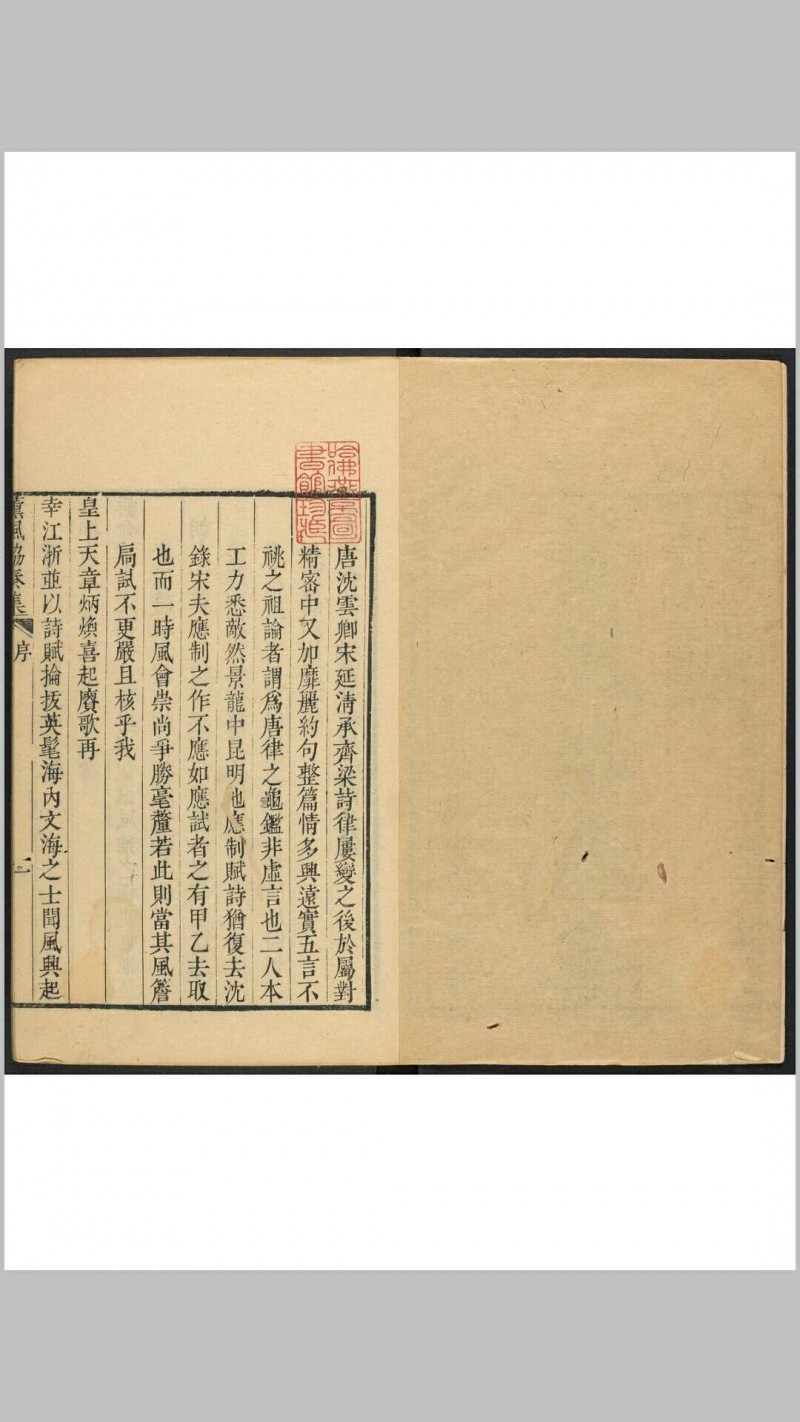 哈佛燕京圖
書館珍藏
唐沈雲卿宋延淸承齊梁詩律屢變之後於屬對
精密中又加靡麗約句整篇情多興遠實五言不
祧之祖論者謂爲唐律之龜鑑非虛言也二人本
工力悉敵然景龍中昆明池應制賦詩猶復去沈
錄宋夫應制之作不應如應試者之有甲乙去取
也而一時風會崇尚爭勝毫釐若此則當其風簷
扃試不更嚴且核乎我
皇上天章炳煥喜起賡歌再
幸江浙並以詩賦掄拔英髦海內文海之士聞風興起
薰風協奏集 序 一